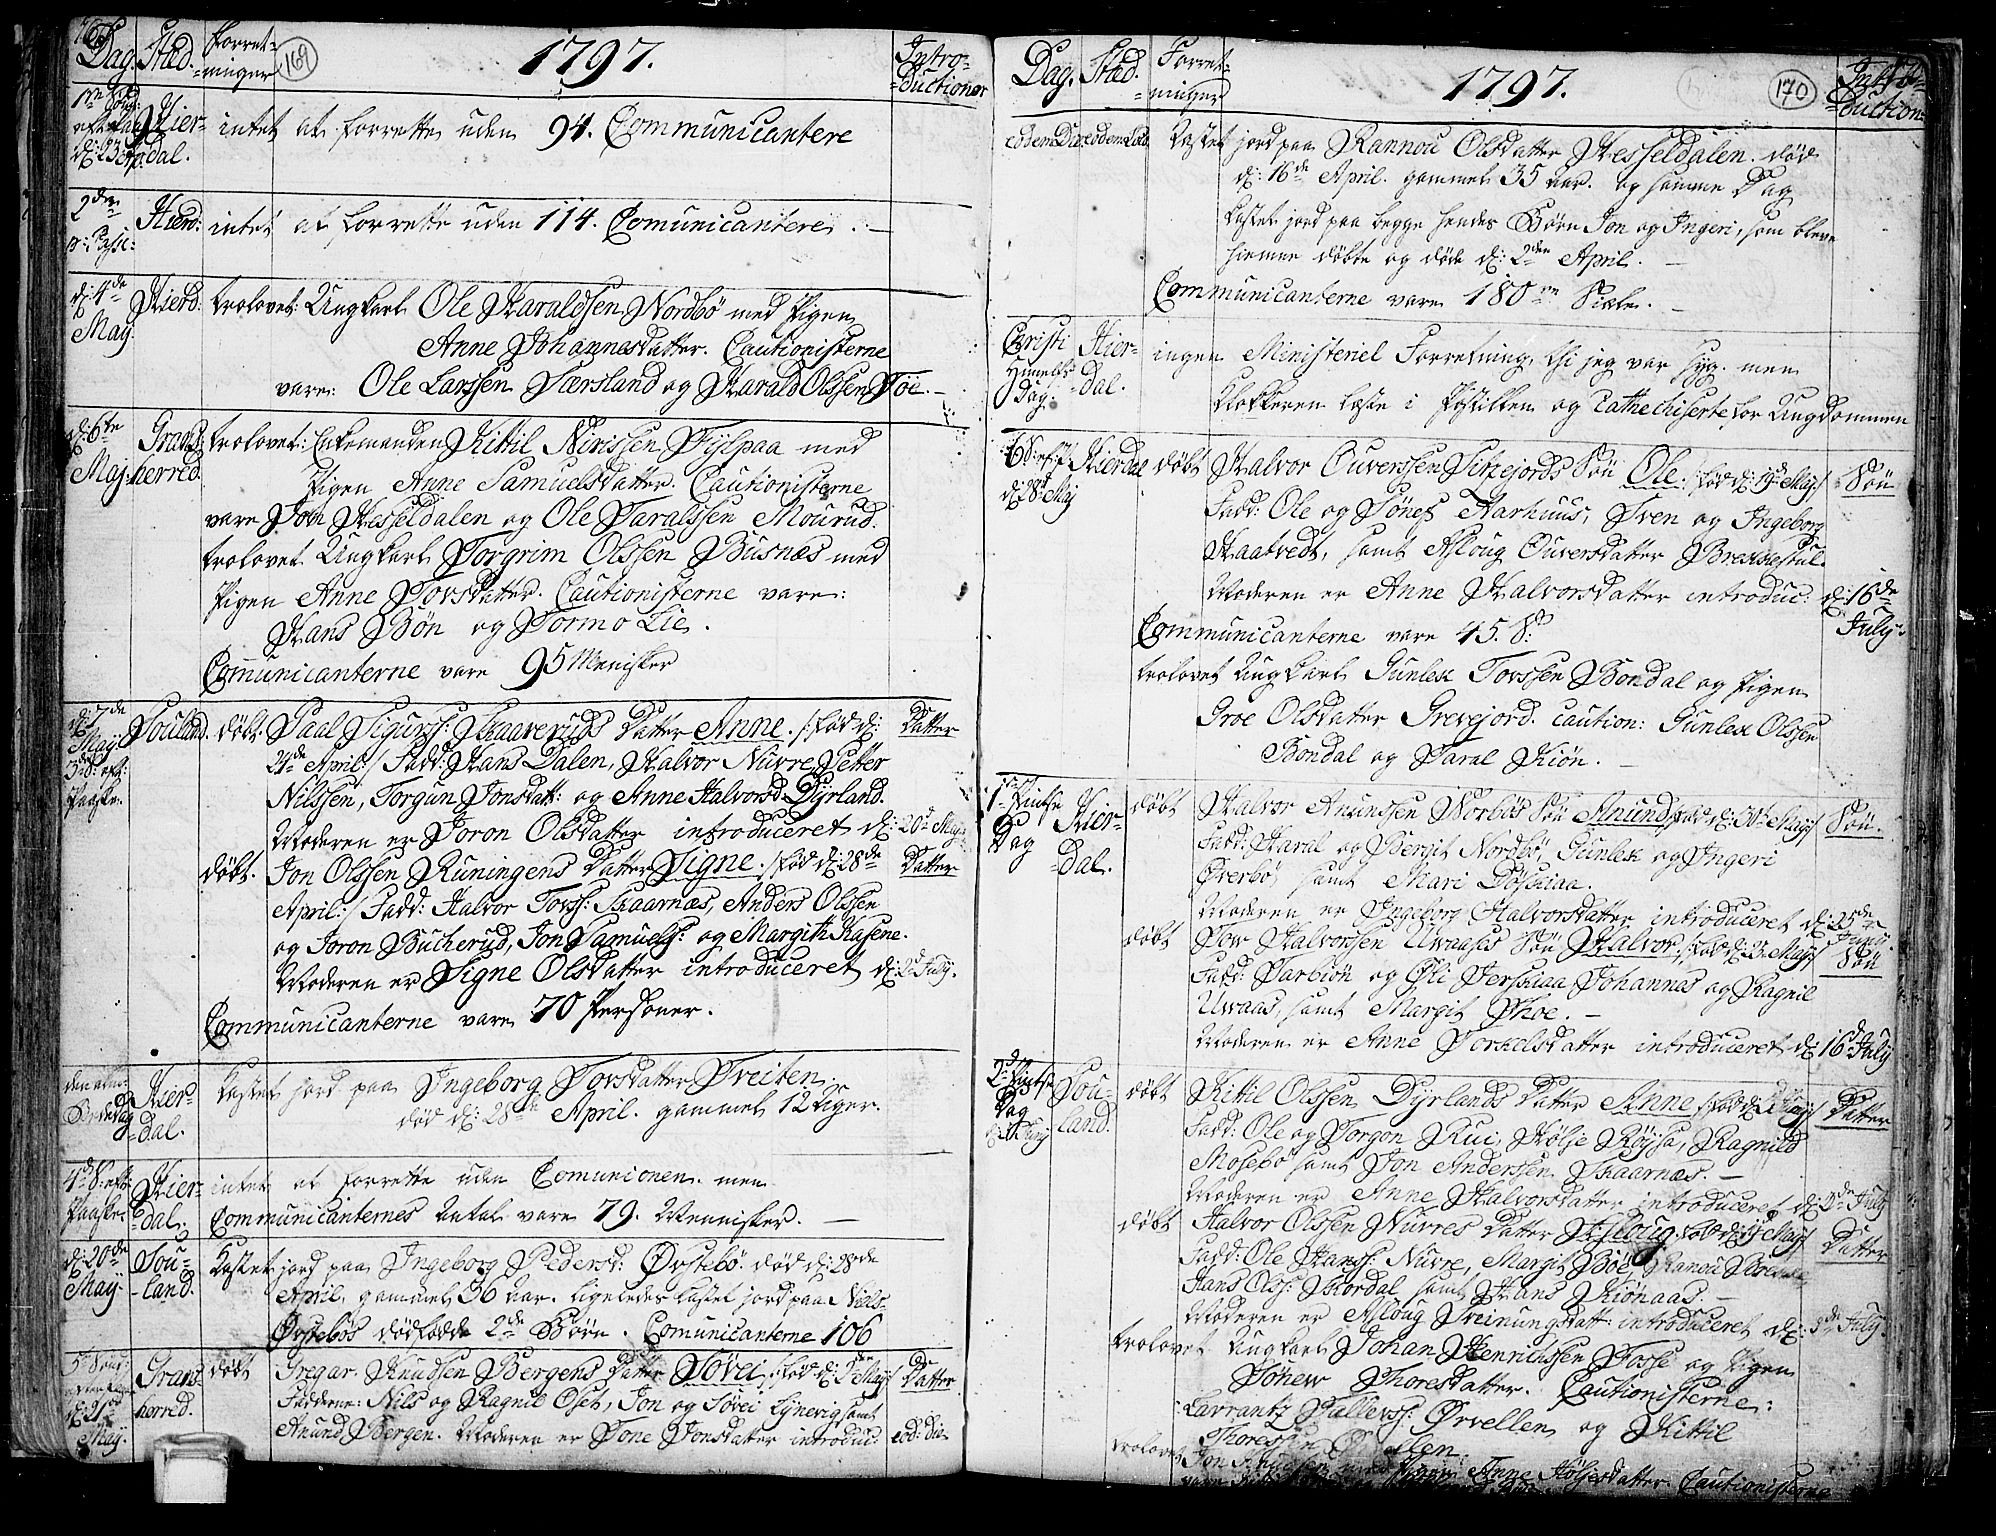 169
Dag. Sted. Forret-
ninger
1797.
Intro-
ductioner
Hier-
dal. intet at forrette uden 94. Communicantere
2den
p: Pasc: Hierd: intet at forrette uden 114. Comunicantere. —
d: 4de
May. Hierd. trolovet: Ungkarl Ole Haraldsen Nordbö med Pigen
Anne Johannesdatter. Cautionisterne
vare: Ole Larssen Særsland og Harald Olssen Töe. —
d: 6te
Maj. Grans-
herred. trolovet: Enkemanden Kittil Nirissen med
Pigen Anne Samuelsdatter. Cautionisterne
vare Jon Hesseldalen og Ole Taralssen Mourud.
trolovet Ungkarl Torgrim Olssen Busnæs med
Pigen Anne Torsdatter. Cautionisterne vare:
Hans Bön og Tormo Lie.
Communicanterne vare 95 Menisker
d: 7de
May.
3 S: eft:
Paaske. Souland. döbt. Paal Sigurss: Skaareruds Datter Anne. /: föd d:
24de April :/ Fadd: Hans Dalen, Halvor Nurre, Petter
Nilssen, Torgun Jonsdatt: og Anne Halvorsd. Dyrland.
Moderen er Joron Olsdatter introduceret d: 20de May.
Datter
döbt. Jon Olssen Runingens Datter Signe. /: föd d: 28de
Datter
April :/ Fadd: Halvor Torss: Skaarnæs, Anders Olssen
og Joron Bucherud, Jon Samuelss: og Margith Kasene.
Moderen er Signe Olsdatter introduceret d: 2d July.
Communicanterne vare 70 Personer.
Hier-
dal. Kastet jord paa Ingeborg Torsdatter Tveiten.
död d: 28de April. gammel 12 Uger.
4de S: eft:
Paaske. Hier-
dal. intet at forrette uden Comunionen. men
Communicanternes Antal vare 79. Mennisker. —
d: 20de
May. Sou-
land. Kastet jord paa Ingeborg Pedersd: Örstebö. död d: 28de
April. gammel 56 aar. ligeledes kastet jord paa Niels
Örstebös dödfödde 2de Börn. Comunicanterne 106
5 Sönd:
d: 21de
May. Grans-
herred. döbt Gregar Knudsen Bergens Datter Sövei /: föd d: 2den May:/ Datter
Fadderne: Nils og Ragnil Öset, Jon og Sövei Lynevig samt
Anund Bergen. Moderen er Tone Jonsdatter introduc: eod: die
170
Dag. Sted. Forret-
ninger
1797.
Intro-
duction
eodem Die eodem Loco Kastet jord paa Rannou Olsdatter Hesseldalen. död
d: 16de April. gammel 35 aar. og samme Dag
kastet jord paa begge hendes Börn Jon og Ingeri, som bleve
hiemme döbte og döde d: 2den April. —
Communicanterne vare 180 Siæle. —
Christi
Himelf:
Dag. Hier-
dal. ingen Ministeriel Forretning, thi jeg var syg. men
Klokkeren læste i Postillen og Cathechiserte for Ungdommen
6 S: eft: P:
d: 28 Maj Hierdal döbt Halvor Ouverssen Sitzejords Sön Ole. /: föd d: 19de May:/ Sön
Fadd: Ole og Sönef Aarhuus, Sven og Ingeborg
Haatvedt, samt Asloug Ouversdatter Brekkestul.
Moderen er Anne Halvorsdatter introduc: d: 16de
July.
Communicanterne vare 45. S:
trolovet Ungkarl Gunlek Torssen Bondal og Pigen
Groe Olsdatter Grevejord. caution: Gunlek Olssen
Bondal og Taral Kiön. —
1ste Pintse
Dag Hier-
dal. döbt Halvor Anunssen Norbös Sön Anund, föd d: 30te May:/ Sön.
Fadd: Haral og Bergit Nordbö, Gunlek og Ingeri
Överbö, samt Mari Döskiaa.
Moderen er Ingeborg Halvorsdatter introduceret d: 25de
Juny.
döbt Tov Halvorssen Uvaases Sön Halvor, /: föd d: 23. May:/ Sön
Fadd: Tarbiön og Öli Jerskiaa, Johannes og Ragnil
Uvaas, samt Margit Thoe. —
Moderen er Anne Torkelsdatter introduceret d: 16 July
2d Pintse
Dag Sou-
land. döbt Kittil Olssen Dyrlands Datter Anne /: föd d: Datter
Fadd: Ole og Torgon Rui, Hölje Röysa, Ragnild
Mosebö samt Jon Anderssen Skaarnæs. —
Moderen er Anne Halvorsdatter introduceret d: 2de July
döbt Halvor Olssen Nurres Datter Asloug. föd d: 19 May:/ Datter
Fadd: Ole Hanss: Nurre, Margit Böe, Ranou
Hans Olss: Skordal samt Hans Kiönaas. —
Moderen er Asloug Sveinungsdatt: introduceret d: July.
trolovet Ungkarl Johan Henrichssen Fosse og Pigen
Sönev Thoresdatter. Cautionisterne:
Lavrantz Tallevss: Örvellen og Kittil
Thoressen Örvellen.
trolovet Jon Knudsen med Pigen Anne Höljesdatter. Cautionisterne